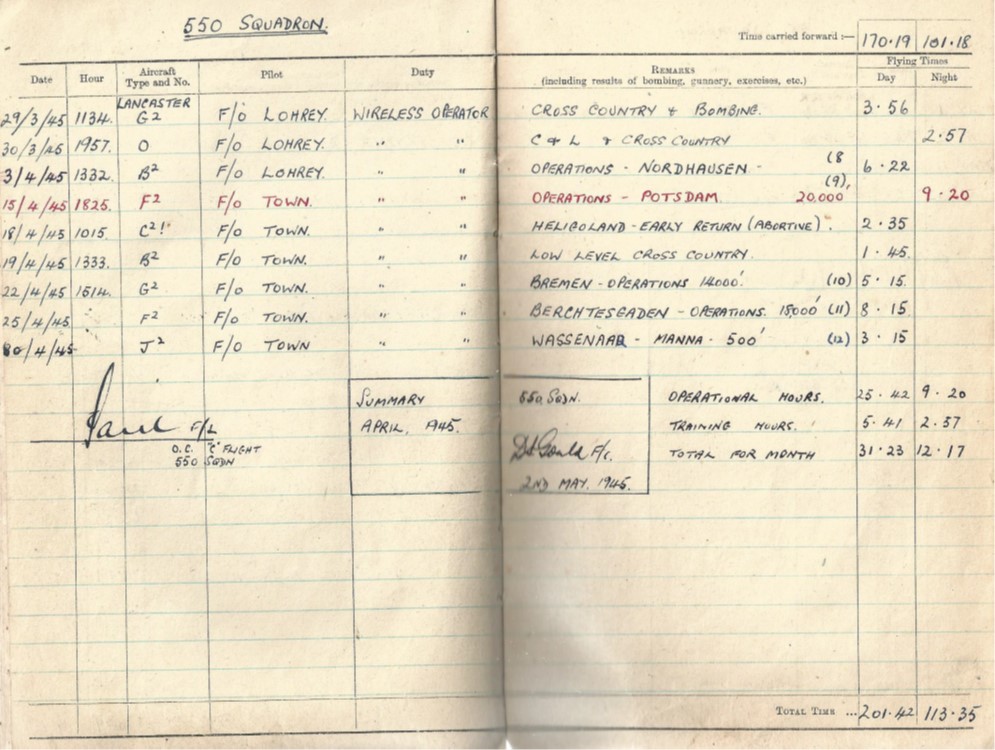 550 SQUADRON.
Time carried forward :— 170·19 101·18
Flying Times
Date Hour Aircraft Type and No. Pilot Duty REMARKS (including results of bombing, gunnery, exercises, etc.) Day Night
LANCASTER
29/3/45 1134. G2 F/O LOHREY. WIRELESS OPERATOR CROSS COUNTRY & BOMBING. 3·56
30/3/45 1957. O F/O LOHREY. " " C & L & CROSS COUNTRY 2·57
3/4/45 1332. B2 F/O LOHREY. " " OPERATIONS - NORDHAUSEN - (8 6·22
15/4/45 1825. F2 F/O TOWN. " " OPERATIONS - POTSDAM. (9), 20,000 9·20
18/4/45 1015. C2! F/O TOWN. " " HELIGOLAND - EARLY RETURN (ABORTIVE). 2·35
19/4/45 1333. B2 F/O TOWN. " " LOW LEVEL CROSS COUNTRY. 1·45.
22/4/45 1514. G2 F/O TOWN. " " BREMEN - OPERATIONS 14000' (10) 5·15.
25/4/45 F2 F/O TOWN. " " BERCHTESGADEN - OPERATIONS. 18000' (11) 8·15
30/4/45 J2 F/O TOWN " " WASSENAAR - MANNA - 500' (12) 3·15
SUMMARY 550 SQDN. OPERATIONAL HOURS. 25·42 9·20
F/L APRIL, 1945. TRAINING HOURS. 5·41 2·57
O.C. "C" FLIGHT Gould F/L. TOTAL FOR MONTH 31·23 12·17
550 SQDN
2ND MAY. 1945.
TOTAL TIME ... 201·42 113·35